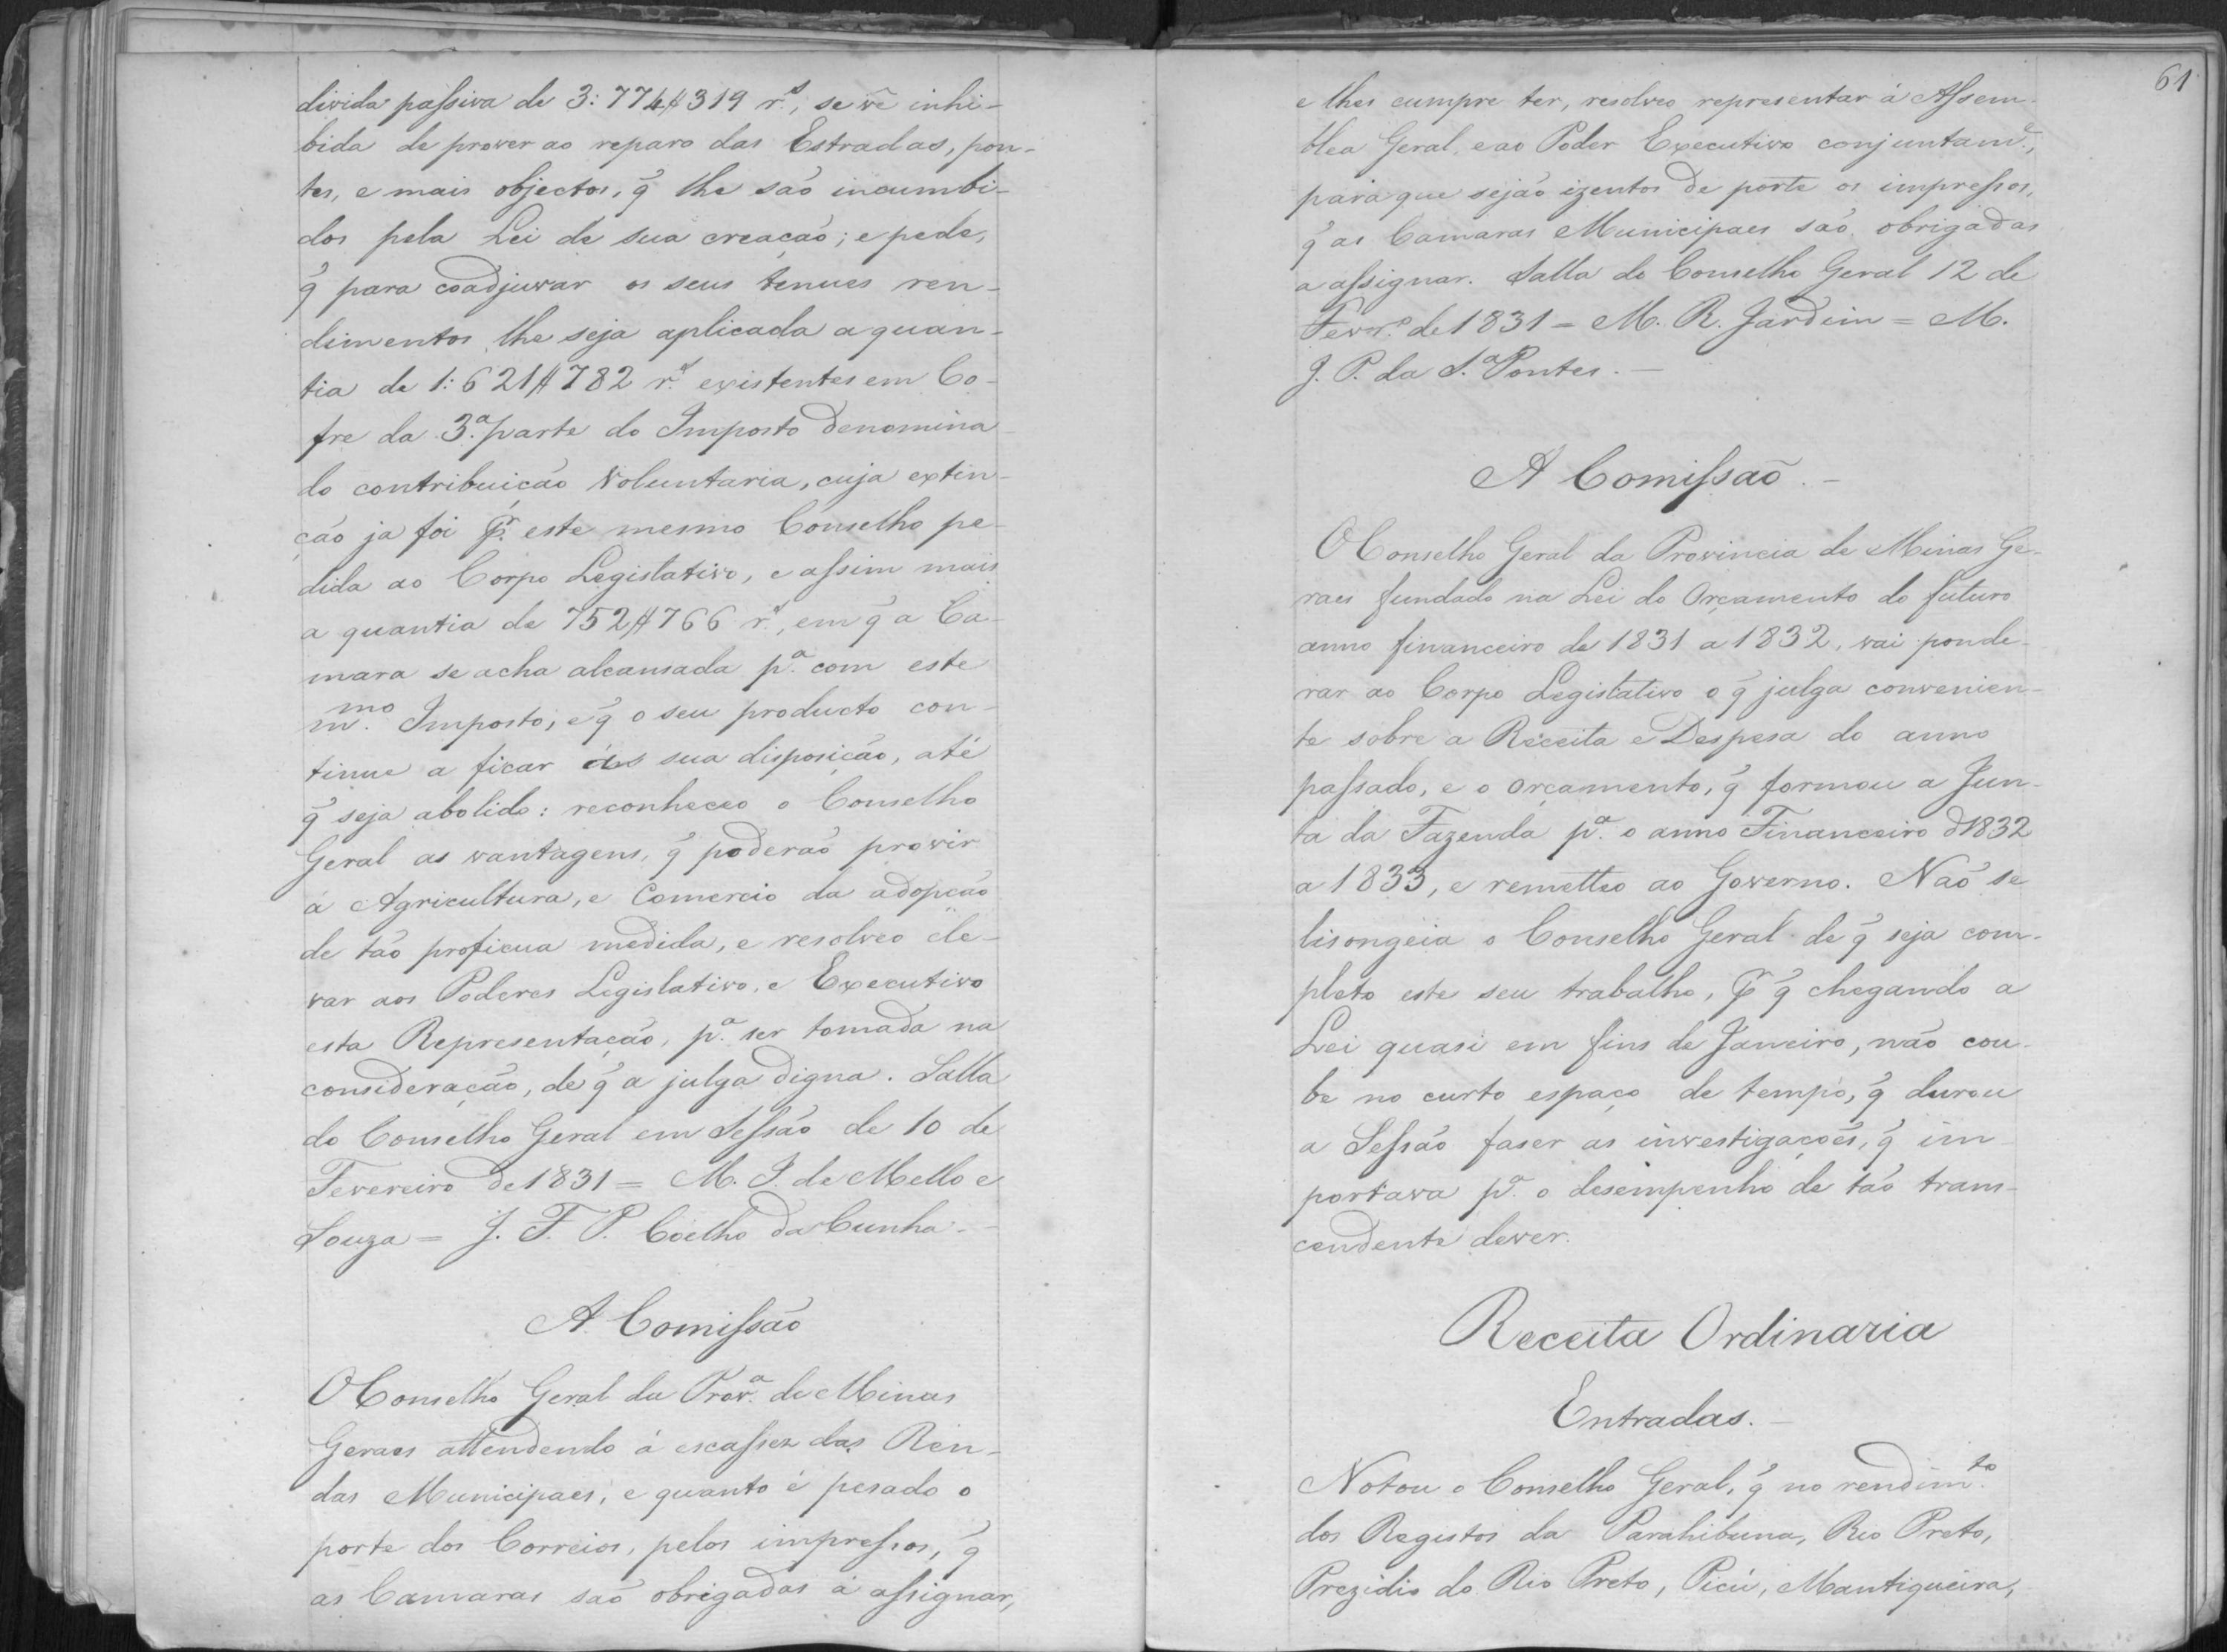 divida passiva de 3:774$319 r.s, se vê inhi-
bida de prover ao reparo das Estradas, pon-
tes, e mais objectos, q̃ lhe são incumbi-
dos pela Lei de sua creação; e pede,
q̃ para coadjuvar os seus tenues ren-
dimentos lhe seja aplicada a quan-
tia de 1:621$782 r.s existentes em Co-
fre da 3.a parte do Imposto denomina
do contribuição voluntaria, cuja extin-
ção ja foi p.r este mesmo Conselho pe-
dida ao Corpo Legislativo, e assim mais
a quantia de 752$766 r.s, em q̃ a Ca-
mara se acha alcansada p.a com este
m.mo Imposto, e q̃ o seu producto con-
tinue a ficar á sua disposição, até
q̃ seja abolido: reconheceo o Conselho
Geral as vantagens, q̃ poderão provir
á Agricultura, e Comercio da adopção
de tão proficua medida, e resolveo ele-
var aos Poderes Legislativo, e Executivo
esta Representação, p.a ser tomada na
consideração, de q̃ a julga digna. Salla
do Conselho Geral em Sessão de 10 de
Fevereiro de 1831 = M. I. de Mello e
Souza = J. F. P. Coelho da Cunha -
A Comissão
O Conselho Geral da Prov.a de Minas
Geraes attendendo á escassez das Ren-
das Municipaes, e quanto é pesado o
porte dos Correios, pelos impressos, q̃
as Camaras são obrigadas á assignar,
61
e lhes cumpre ter, resolveo representar á Assem-
blea Geral, e ao Poder Executivo conjuntam.e,
para que sejão izentos de porte os impressos,
q̃ as Camaras Municipaes são obrigadas
a assignar. Salla do Conselho Geral 12 de
Fever.o de 1831 = M. R. Jardim = M.
J. P. da S.a Pontes. -
A Comissão. -
O Conselho Geral da Provincia de Minas Ge-
raes fundado na Lei do Orçamento do futuro
anno financeiro de 1831 a 1832, vai ponde-
rar ao Corpo Legislativo o q̃ julga convenien-
te sobre a Receita e Despesa do anno
passado, e o orçamento, q̃ formou a Jun-
ta da Fazenda p.a o anno Financeiro d 1832
a 1833, e remetteo ao Governo. Não se
lisongeia o Conselho Geral de q̃ seja com-
pleto este seu trabalho, p.r q̃ chegando a
Lei quasi em fins de Janeiro, não cou-
be no curto espaço de tempo, q̃ durou
a Sessão faser as investigações, q̃ im
portava p.a o desempenho de tão trans-
cendente dever.
Receita Ordinaria
Entradas. -
Notou o Conselho Geral, q̃ no rendim.to
dos Registos da Parahibuna, Rio Preto,
Prezidio do Rio Preto, Picú, Mantiqueira,